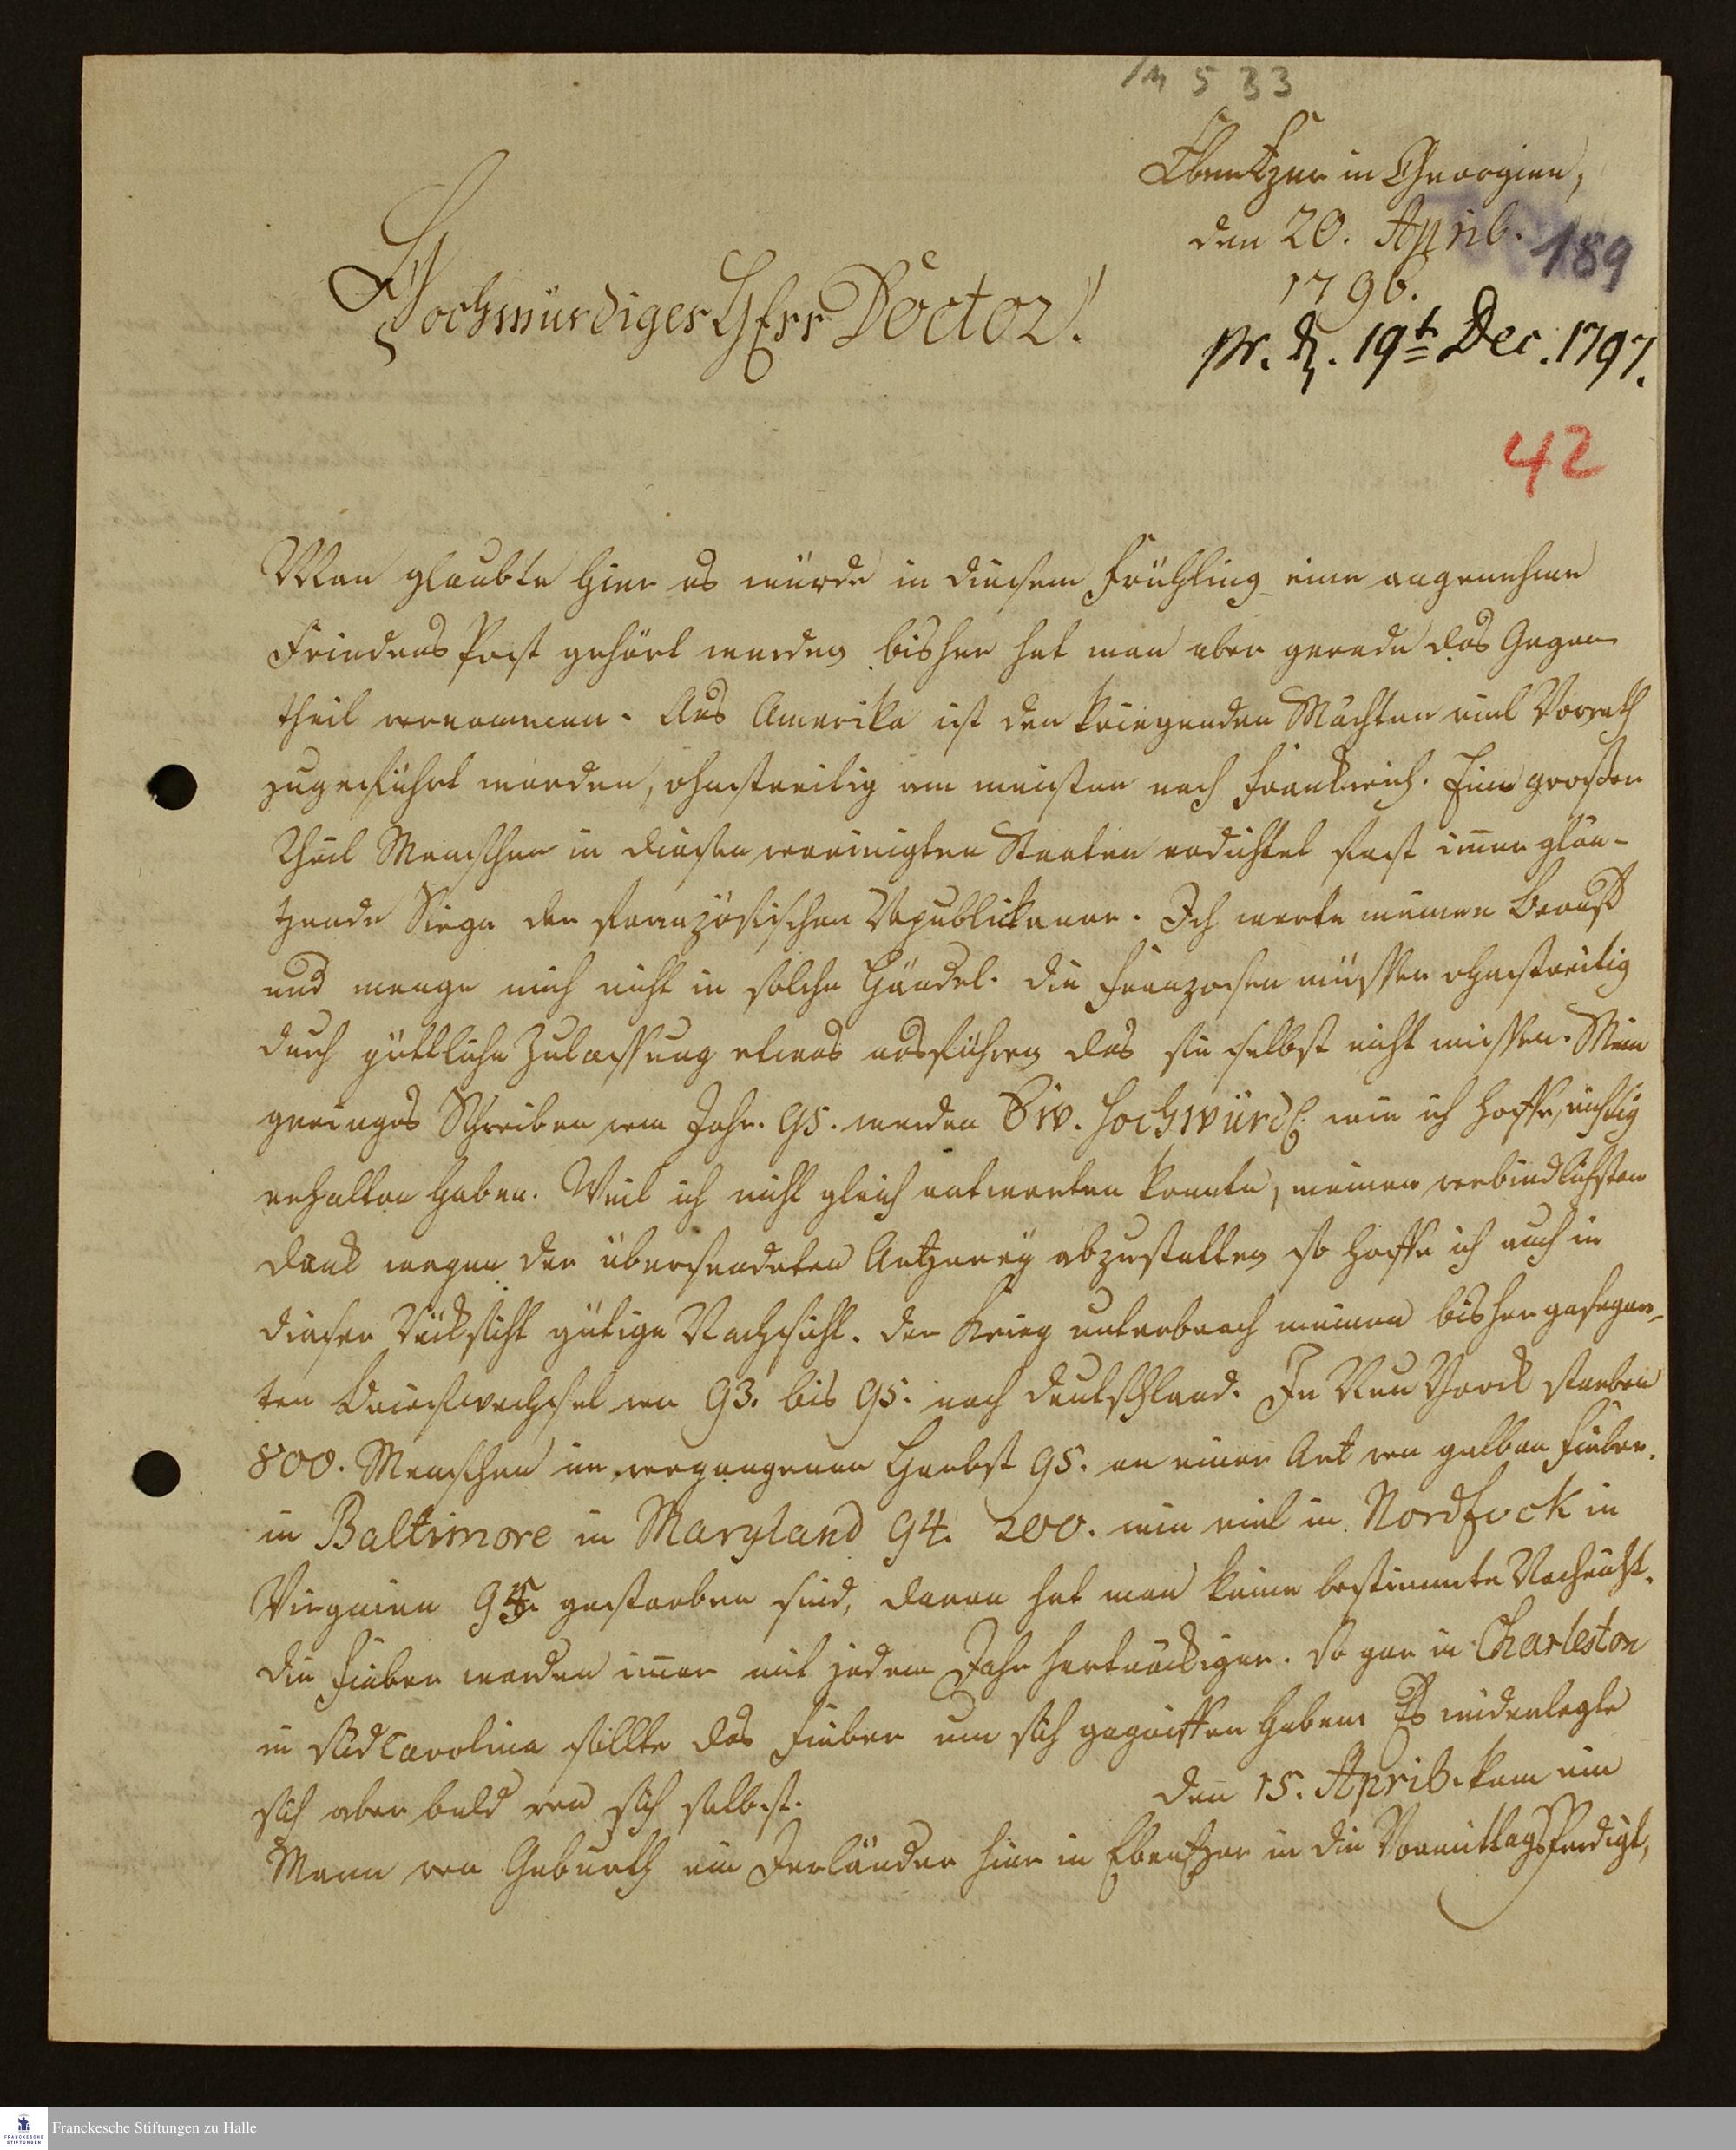 4533
Ebenezer in Georgien,
den 20. April.
189
1796.
Hochwürdiger HErr Doctor!
pr. d. 19t Dec. 1797.
42
Man glaubte hier es würde in diesem Frühling eine angenehme
Friedens Post gehört werden bisher hat man aber gerade das Gegen
theil vernommen. Aus Amerika ist den kriegenden Mächten viel Vorrath
zugeführt worden, ohnstreitig am meisten nach Frankreich. Ein großer
Theil Menschen in diesen vereinigten Staaten erdichtet fast imer glän-
tzende Siege der französischen Republickaner. Ich warte meinen Beruf
und menge mich nicht in solche Händel. Die Franzosen müssen ohnstreitig
durch göttliche Zulassung etwas ausführen das sie selbst nicht wissen. Mein
geringes Schreiben vom Jahr. 95. werden Ew. Hochwürd. wie ich hoffe, richtig
erhalten haben. Weil ich nicht gleich antworten konnte, meinen verbindlichsten
Dank wegen der übersendeten Artzeney abzustatten so hoffe ich auch in
dieser Rücksicht gütige Nachsicht. Der Krieg unterbrach meinen bisher gesegne-
ten Briefwechsel von 93. bis 95. nach Deutschland. In Neu Yorck starben
800. Menschen im vergangenen Herbst 95. an einer Art von gelben Fieber.
in Baltimore in Maryland 94. 200. wie viel in Nordfock in
Virginien 95. gestorben sind, davon hat man keine bestimmte Nachricht.
Die Fieber werden imer mit jedem Jahr hartnäckiger. So gar in Charleston
in Süd Carolina sollte das Fieber um sich gegriffen haben Es widerlegte
sich aber bald von sich selbst.
Den 15. April. kam ein
Mann von Geburth ein Irländer hier in Ebenezer in die Vormittagspredigt,
Franckesche Stiftungen zu Halle